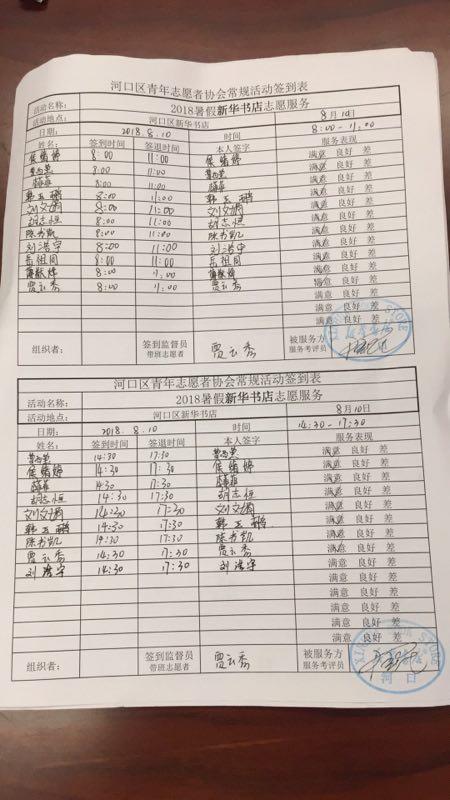 河口区青年志愿者协会常规活动签到表
活动名称： 2018暑假新华书店志愿服务
活动地点： 河口区新华书店 8月10日
日期： 2018.8.10 时间 8:00-11:00
姓名： 签到时间 签退时间 本人签字 服务表现
8:00 11:00 满意 良好 差
8:00 11:00 满意 良好 差
8:00 11:00 满意 良好 差
韩玉鹏 8:00 11:00 韩玉鹏 满意 良好 差
刘文娟 8:00 11:00 刘文娟 满意 良好 差
胡志恒 8:00 11:00 胡志恒 满意 良好 差
陈书凯 8:00 11:00 陈书凯 满意 良好 差
刘浩宇 8:00 11:00 刘浩宇 满意 良好 差
岳祖同 8:00 11:00 岳祖同 满意 良好 差
8:00 11:00 满意 良好 差
贾云秀 8:00 11:00 贾云秀 满意 良好 差
满意 良好 差
满意 良好 差
组织者： 签到监督员 带班志愿者 贾云秀 被服务方 服务考评员
河口区青年志愿者协会常规活动签到表
活动名称： 2018暑假新华书店志愿服务
活动地点： 河口区新华书店 8月10日
日期： 2018.8.10 时间 14:30-17:30
姓名： 签到时间 签退时间 本人签字 服务表现
14:30 17:30 满意 良好 差
14:30 17:30 满意 良好 差
14:30 17:30 满意 良好 差
胡志恒 14:30 17:30 胡志恒 满意 良好 差
刘文娟 14:30 17:30 刘文娟 满意 良好 差
韩玉鹏 14:30 17:30 韩玉鹏 满意 良好 差
陈书凯 14:30 17:30 陈书凯 满意 良好 差
贾云秀 14:30 17:30 贾云秀 满意 良好 差
刘浩宇 14:30 17:30 刘浩宇 满意 良好 差
满意 良好 差
满意 良好 差
满意 良好 差
满意 良好 差
组织者： 签到监督员 带班志愿者 贾云秀 被服务方 服务考评员
河口